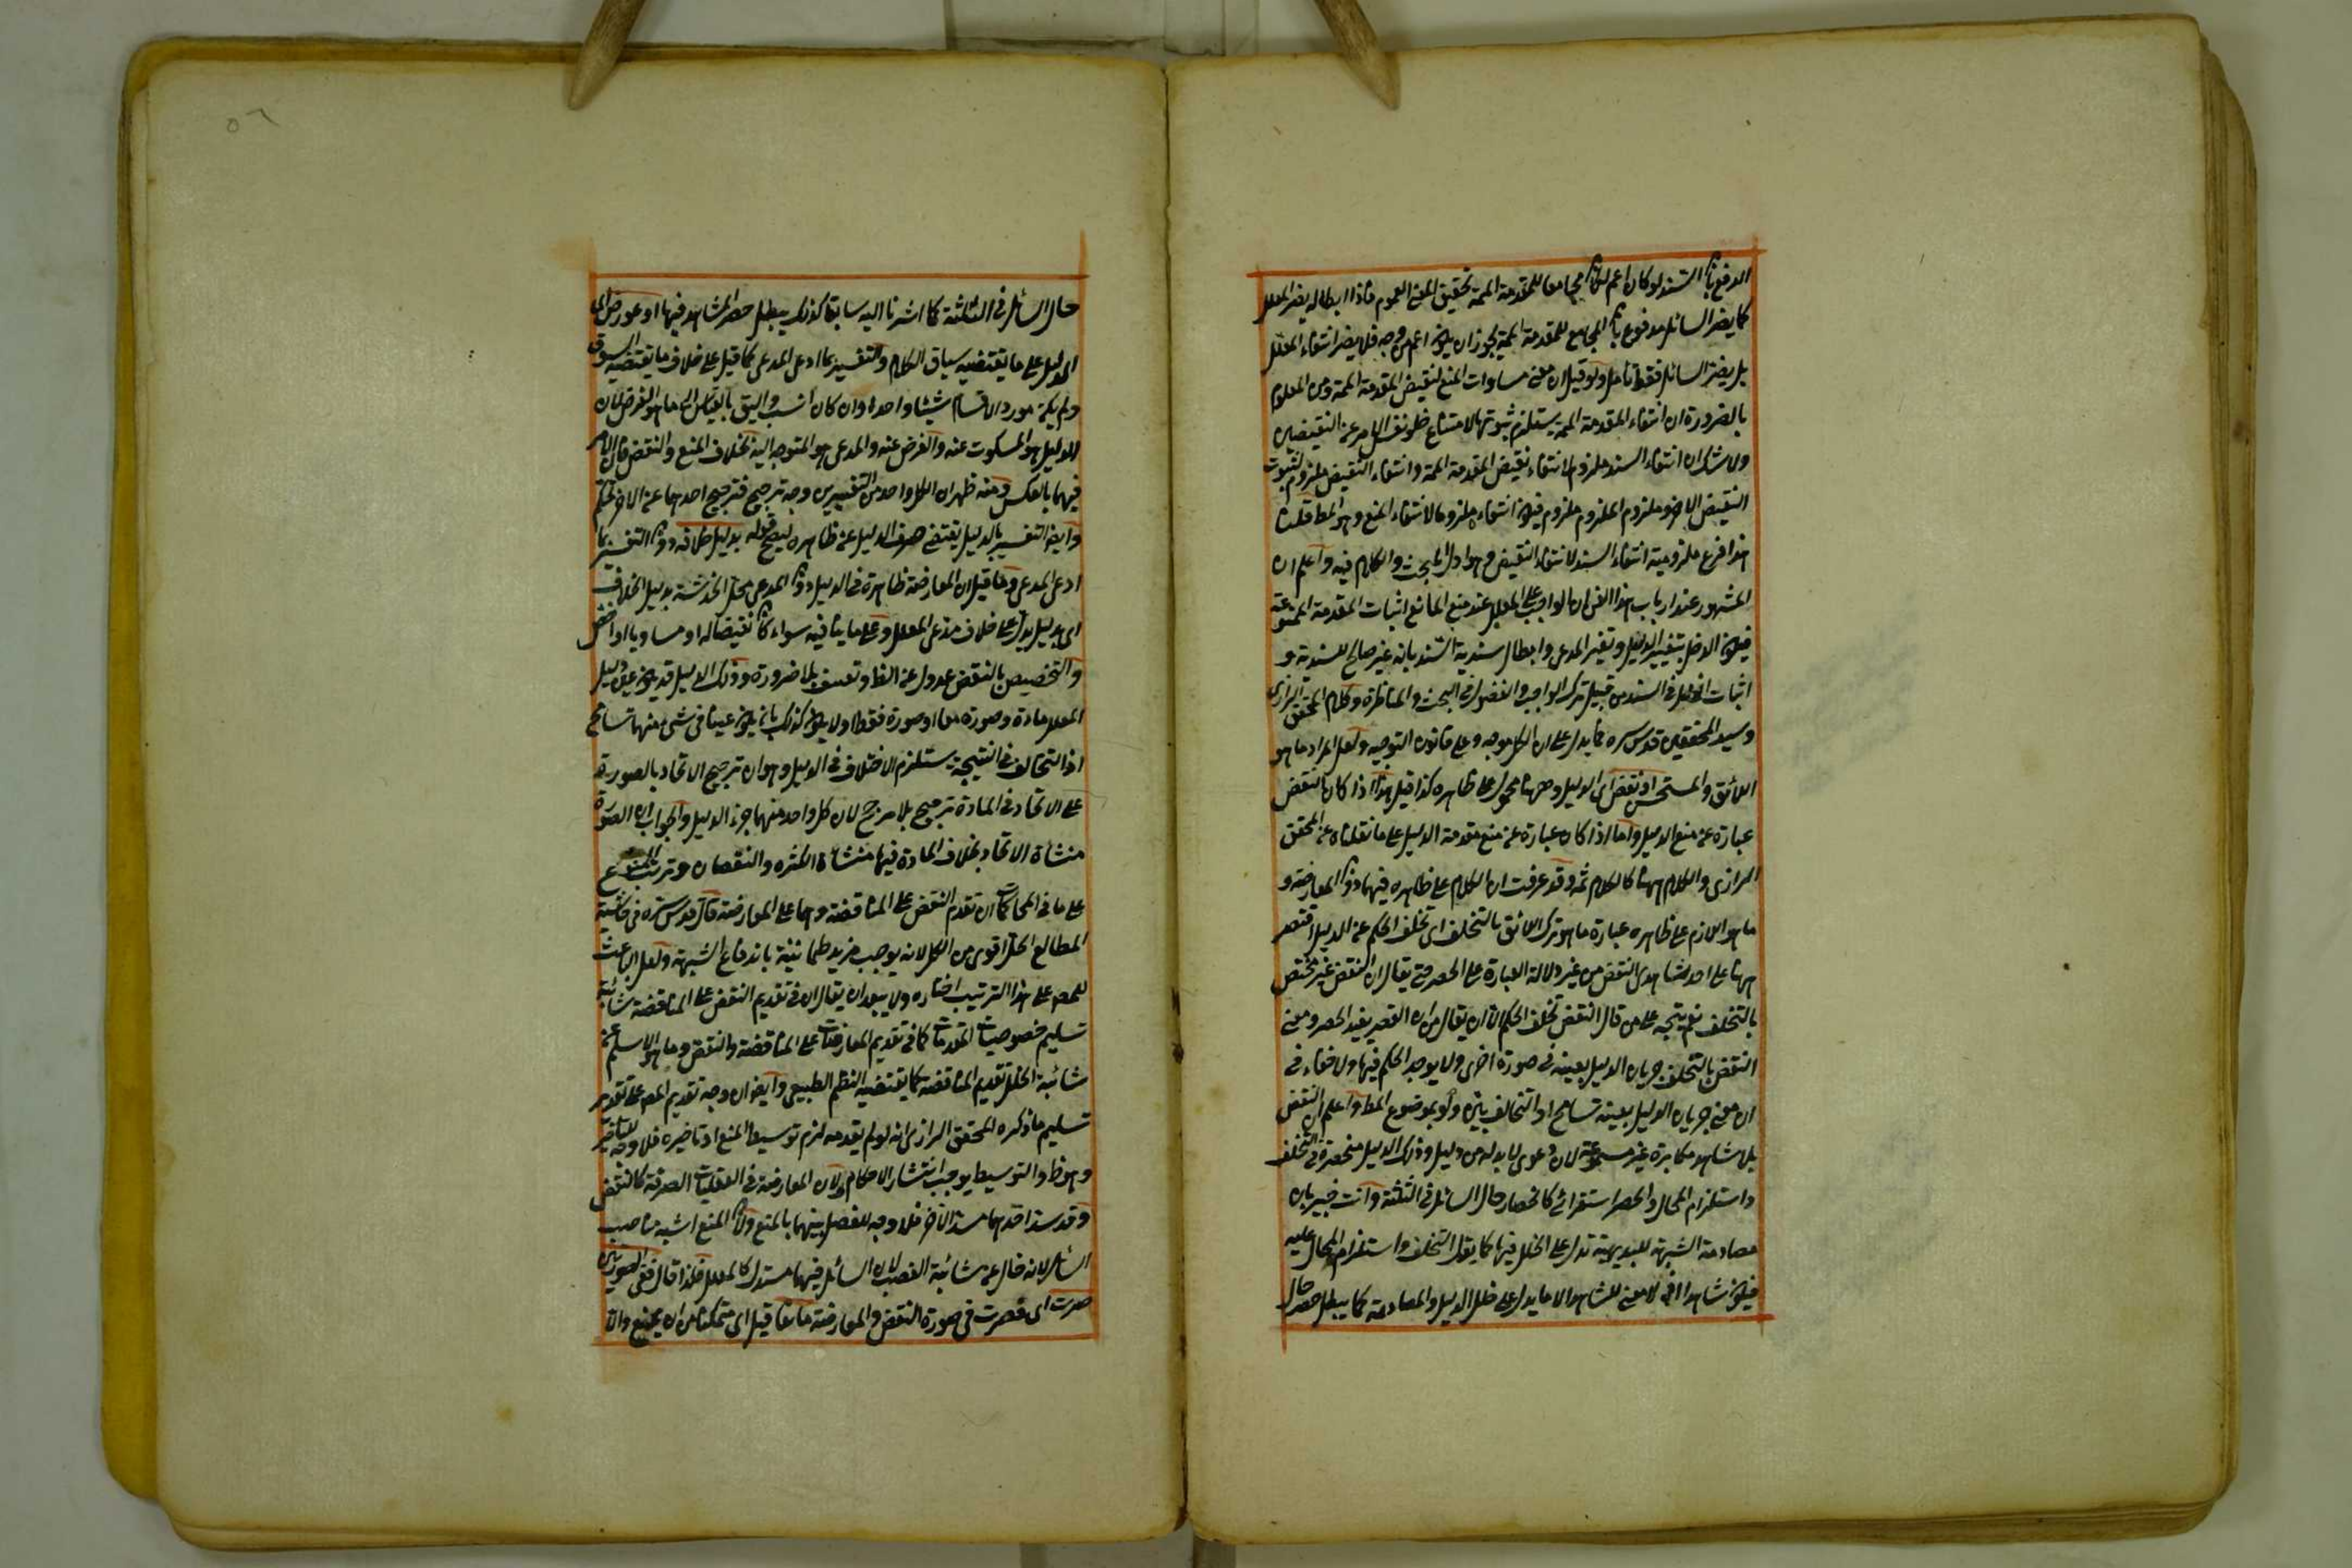 الدفع بان السند لو كان اعم لكان مجامعا للمقدمة المم تحقيق المعنى العموم فاذا ابطاله يضر المعلل
كما يضر السائل مدفوع بان المجامع للمقدمة المم يجوز ان يكون اعم من وجه فلا يضر انتفاء المعلل
بل يضر السائل فقط تامل ولو قيل ان معنى مساوات المنع لنقيض المقدمة المم ومن المعلوم
بالضرورة ان انتفاء المقدمة المم يستلزم ثبوتها لامتناع خلو نفس الامر عن النقيضين
ولا شك ان انتفاء السند ملزوم لانتفاء نقيض المقدمة المم وانتفاء النقيض ملزوم لثبوت
النقيض الاخر وملزوم الملزوم ملزوم فيكون انتفاءه ملزوما لانتفاء المنع وهو المط قلنا
هذا فرع ملزومية انتفاء السند لانتفاء النقيض وهو اول البحث والكلام فيه واعلم ان
المشهور عند ارباب هذا الفن ان الواجب على المعلل عند منع المانع اثبات المقدمة الممنوعة
فيكون الدخل بتغيير الدليل وتغير المدعى وابطال سندية السند بانه غير صالح للسندية و
اثبات الخلل في السند من قبيل ترك الواجب والفضول في البحث والمناظرة وكلام المحقق الرازي
وسيد المحققين قدس سره مما يدل على ان الكل موجه وعلى قانون التوجيه ولعل المراد ما هو
اللائق والمستحسن او نقض اى الدليل وههنا محمول على ظاهره كذا قيل هذا اذا كان النقض
عبارة عن منع الدليل واما اذا كان عبارة عن منع مقدمة الدليل على ما نقلناه عن المحقق
الرازى والكلام ههنا كالكلام ثمه وقد عرفت ان الكلام على ظاهره فيهما دون المعارضة و
ما هو اللازم على ظاهره عبارة ما هو ترك اللائق بالتخلف اى تخلف الحكم عن الدليل اقتصر
ههنا على احد شاهدى النقض من غير دلالة العبارة على الحصر حتى يقال ان النقض غير مختص
بالتخلف نعم يتجه على من قال النقض تخلف الحكم الا ان يقال من ان القصر يفيد الحصر ومعنى
النقض بالتخلف جريان الدليل بعينه في صورة اخرى ولا يوجد الحكم فيها ولا خفاء في
ان معنى جريان الدليل بعينه تسامح اذ التخالف بين ولو بموضوع المط واعلم ان النقض
بلا شاهد مكابرة غير مسموعة لان دعوى لا بد له من دليل وذلك الدليل منحصرة في التخلف
واستلزام المحال والحصر استقرائى كانحصار حال السائل في الثلثة وانت خبير بان
مصادمة الشبهة للبديهية تدل على الخلل فيها كما يقول التخلف واستلزام المحال عليه
فيكون شاهدا اذ لا معنى للشاهد الا ما يدل على خلل الدليل والمصادمة كما يبطل حصر حال
حال السائل في الثلثة كما اشرنا اليه سابقا كذلك يبطل حصر الشاهد فيها او عورض اى
الدليل على ما يقتضيه سياق الكلام والتفسير بما ادعى المدعى كما قيل على خلاف ما يقتضيه السوق
ولم يكن مورد الاقسام شيئا واحدا وان كان انسب واليق بالقياس الى ما هو الغرض لان
الدليل هو المسكوت عنه والغرض عنه والمدعى هو المتوجه اليه بخلاف المنع والنقض فان الامر
فيهما بالعكس ومنه ظهر ان لكل واحد من التفسيرين وجه ترجيح فترجيح احدهما عن الاخر تحكم
وايضا التفسير بالدليل يقتضى صرف الدليل عن ظاهره ليصح قوله بدليل خلافه دون التفسير بما
ادعى المدعى وما قيل ان المعارضة ظاهرة في الدليل دون المدعى محل الخدشة بدليل الخلاف
اى بدليل يدل على خلاف مدعى المعلل وعلى ما ينافيه سواء كان نقيضا له او مساويا او اخص
والتخصيص بالنقض عدول عن الظ وتعسف بلا ضرورة وذلك الدليل قد يكون عين دليل
المعلل مادة وصورة معا او صورة فقط او لا يكون كذلك بان يكون عينا في شئ منهما تسامح
اذ التخالف في النتيجة يستلزم الاختلاف في الدليل وهو ان ترجيح الاتحاد بالصورة
على الاتحاد في المادة ترجيح بلا مرجح لان كل واحد منهما جزء الدليل والجواب ان الصورة
منشأة الاتحاد بخلاف المادة فيها منشأة الكثرة والنقصان وترتب المنوع
على ما في المحاكمات ان تقدم النقض على المناقضة وهما على المعارضة قال قدس سره في حاشية
المطالع الحل اقوى من الكل لانه يوجب مزيد طمانينة باندفاع الشبهة ولعل الباعث
للمص على هذا الترتيب اختاره ولا يبعد ان يقال ان في تقديم النقض على المناقضة شائبة
تسليم خصوصيات المقدمات كما في تقديم المعارضات على المناقضة والنقض وما هو الاسلم عن
شائبة الخلل تقديم المناقضة كما يقتضيه النظم الطبيعى وايضا ان وجه تقديم المص على تقدير
تسليم ما ذكره المحقق الرازى انه لو لم يقدمه لزم توسيط المنع او تاخيره فلا وجه للتاخير
وهو ظ والتوسيط يوجب انتشار الاحكام ولان المعارضة في العقليات الصرفة كالنقض
وقد سد احدهما مسد الاخر فلا وجه للفصل بينهما بالمنع ولان المنع اشبه مناصب
السائل لانه خال عن شائبة الغصب لان السائل فيهما مستدل كالمعلل فلذا قال ففى الصورتين
صرت اى فصرت في صورة النقض والمعارضة مانعا قيل اى متمكنا من ان يمنع والا